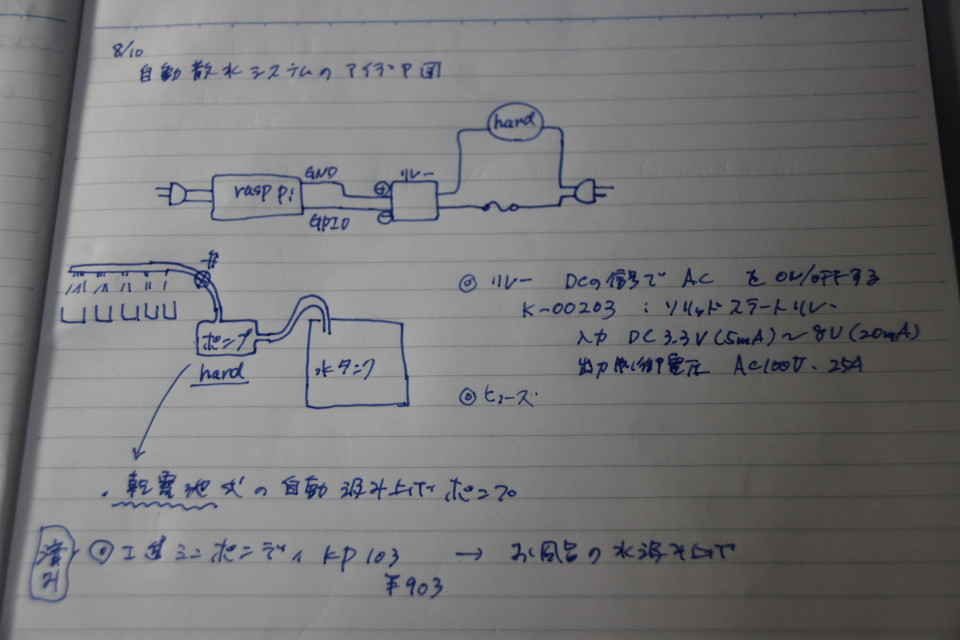 8/10
自動散水システムのアイデア図
hard
リレー
GND
rasp pi
⊕
GPIO
⊖
弁
ポンプ
hard
水タンク
◎ リレー DCの信号で AC を ON/OFFする
K-00203 : ソリッドステートリレー
入力 DC 3.3V (5mA) ~ 8V (20mA)
出力制御電圧 AC100V. 25A
◎ ヒューズ
. 乾電池式の自動汲み上げポンプ
済み
◎ 工進ミニポンディ KP103 → お風呂の水汲み上げ
¥903